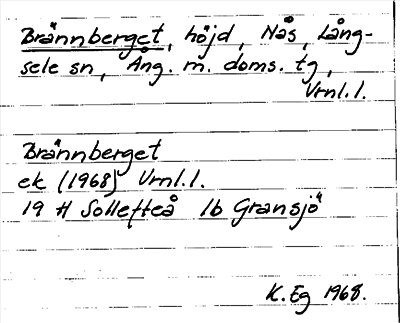 Brännberget, höjd, Näs, Lång-
sele sn, Ång. m. doms. tg,
Vrnl.l.
Brännberget
ek (1968) Vrnl.l.
19 H Sollefteå 1b Gransjö
K.Eg 1968.